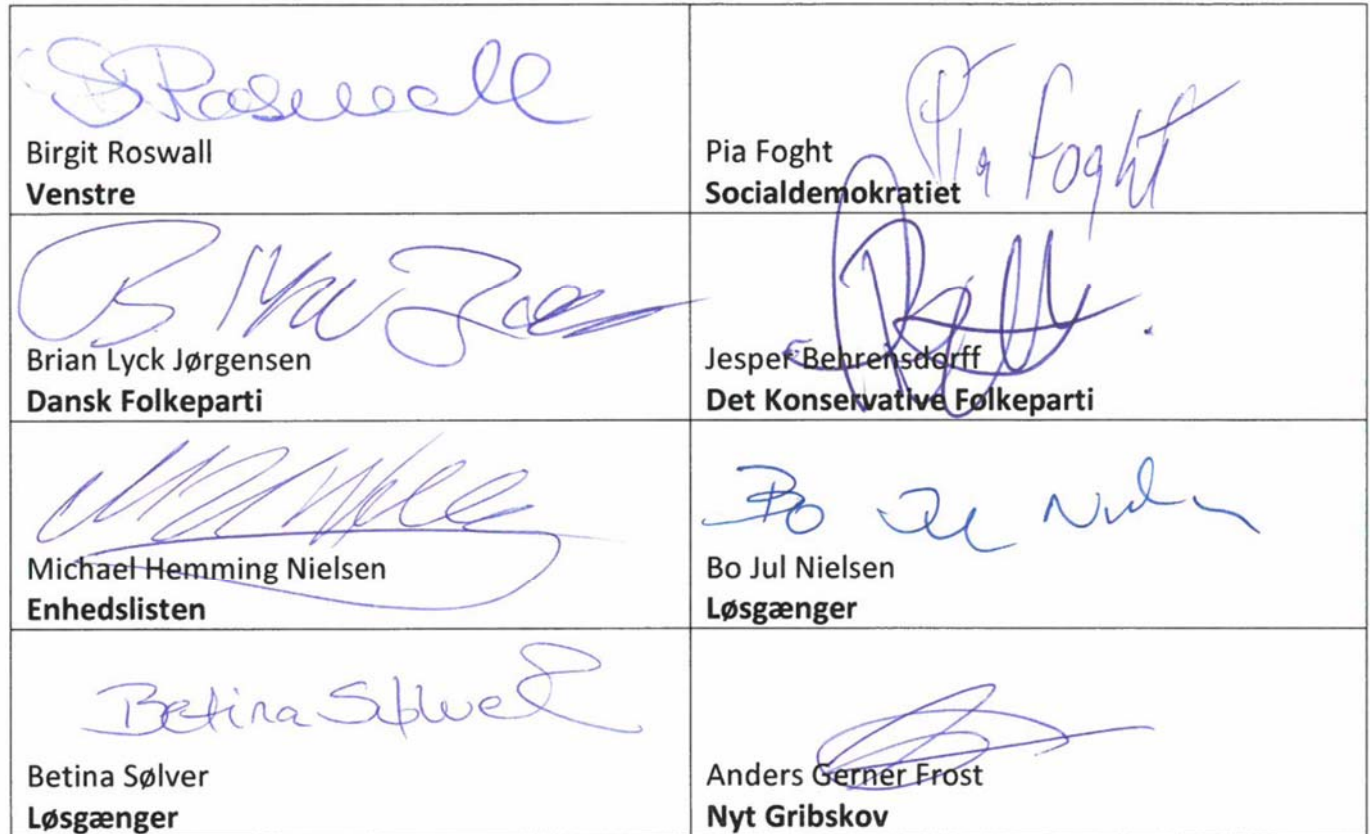 B Roswall
Birgit Roswall
Venstre
Pia Foght
Pia Foght
Socialdemokratiet
Brian Lyck Jørgensen
Dansk Folkeparti
Jesper Behrensdorff
Det Konservative Folkeparti
Michael Hemming Nielsen
Enhedslisten
Bo Jul Nielsen
Bo Jul Nielsen
Løsgænger
Betina Sølver
Betina Sølver
Løsgænger
Anders Gerner Frost
Nyt Gribskov